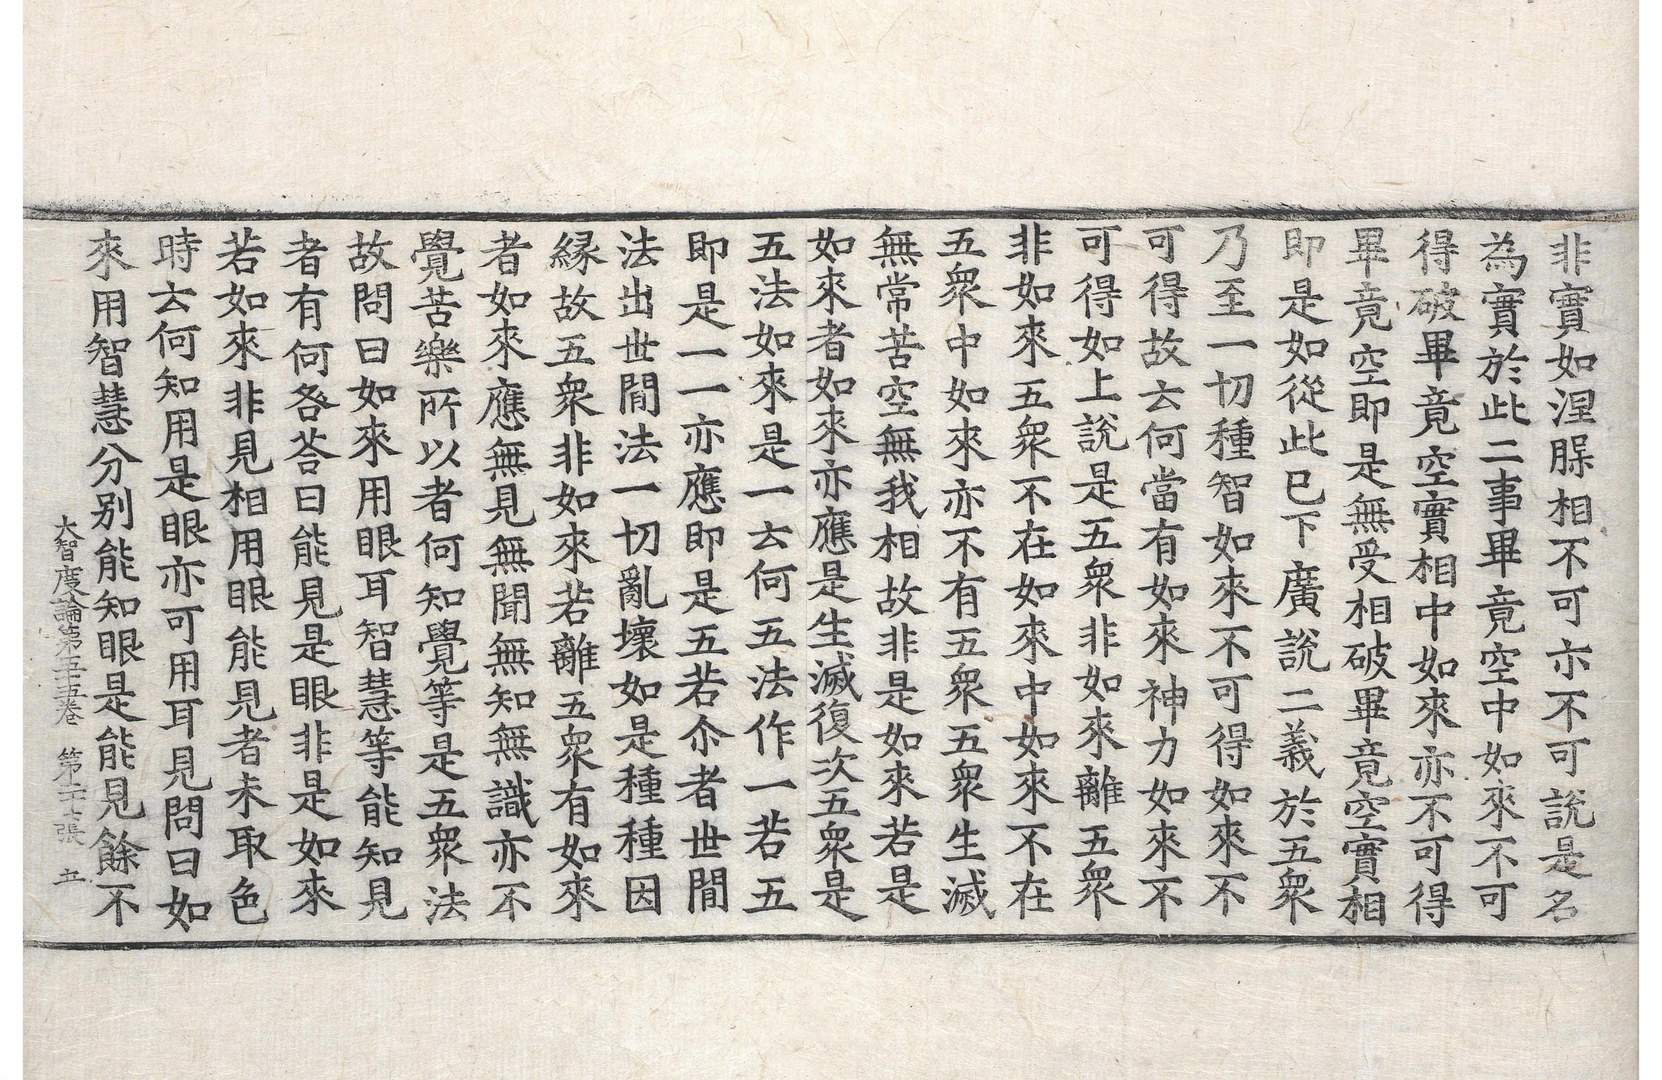 非實如涅脲相不可亦不可說是名
為實於此二事畢竟空中如來不可
得破畢竟空實相中如來亦不可得
畢竟空即是無受相破畢竟空實相
即是如從此已下廣說二義於五衆
乃至一切種智如來不可得如來不
可得故云何當有如來神力如來不
可得如上說是五衆非如來離五衆
非如來五衆不在如來中如來不在
五衆中如來亦不有五衆五衆生滅
無常苦空無我相故非是如來若是
如來者如來亦應是生滅復次五衆是
五法如來是一云何五法作一若五
即是一一亦應即是五若尒者世間
法出世間法一切亂壞如是種種因
緣故五衆非如來若離五衆有如來
者如來應無見無聞無知無識亦不
覺苦樂所以者何知覺等是五衆法
故問曰如來用眼耳智慧等能知見
者有何咎荅曰能見是眼非是如來
若如來非見相用眼能見者未取色
時云何知用是眼亦可用耳見問曰如
來用智慧分別能知眼是能見餘不
大智度論第五十五卷　第二十七張　五